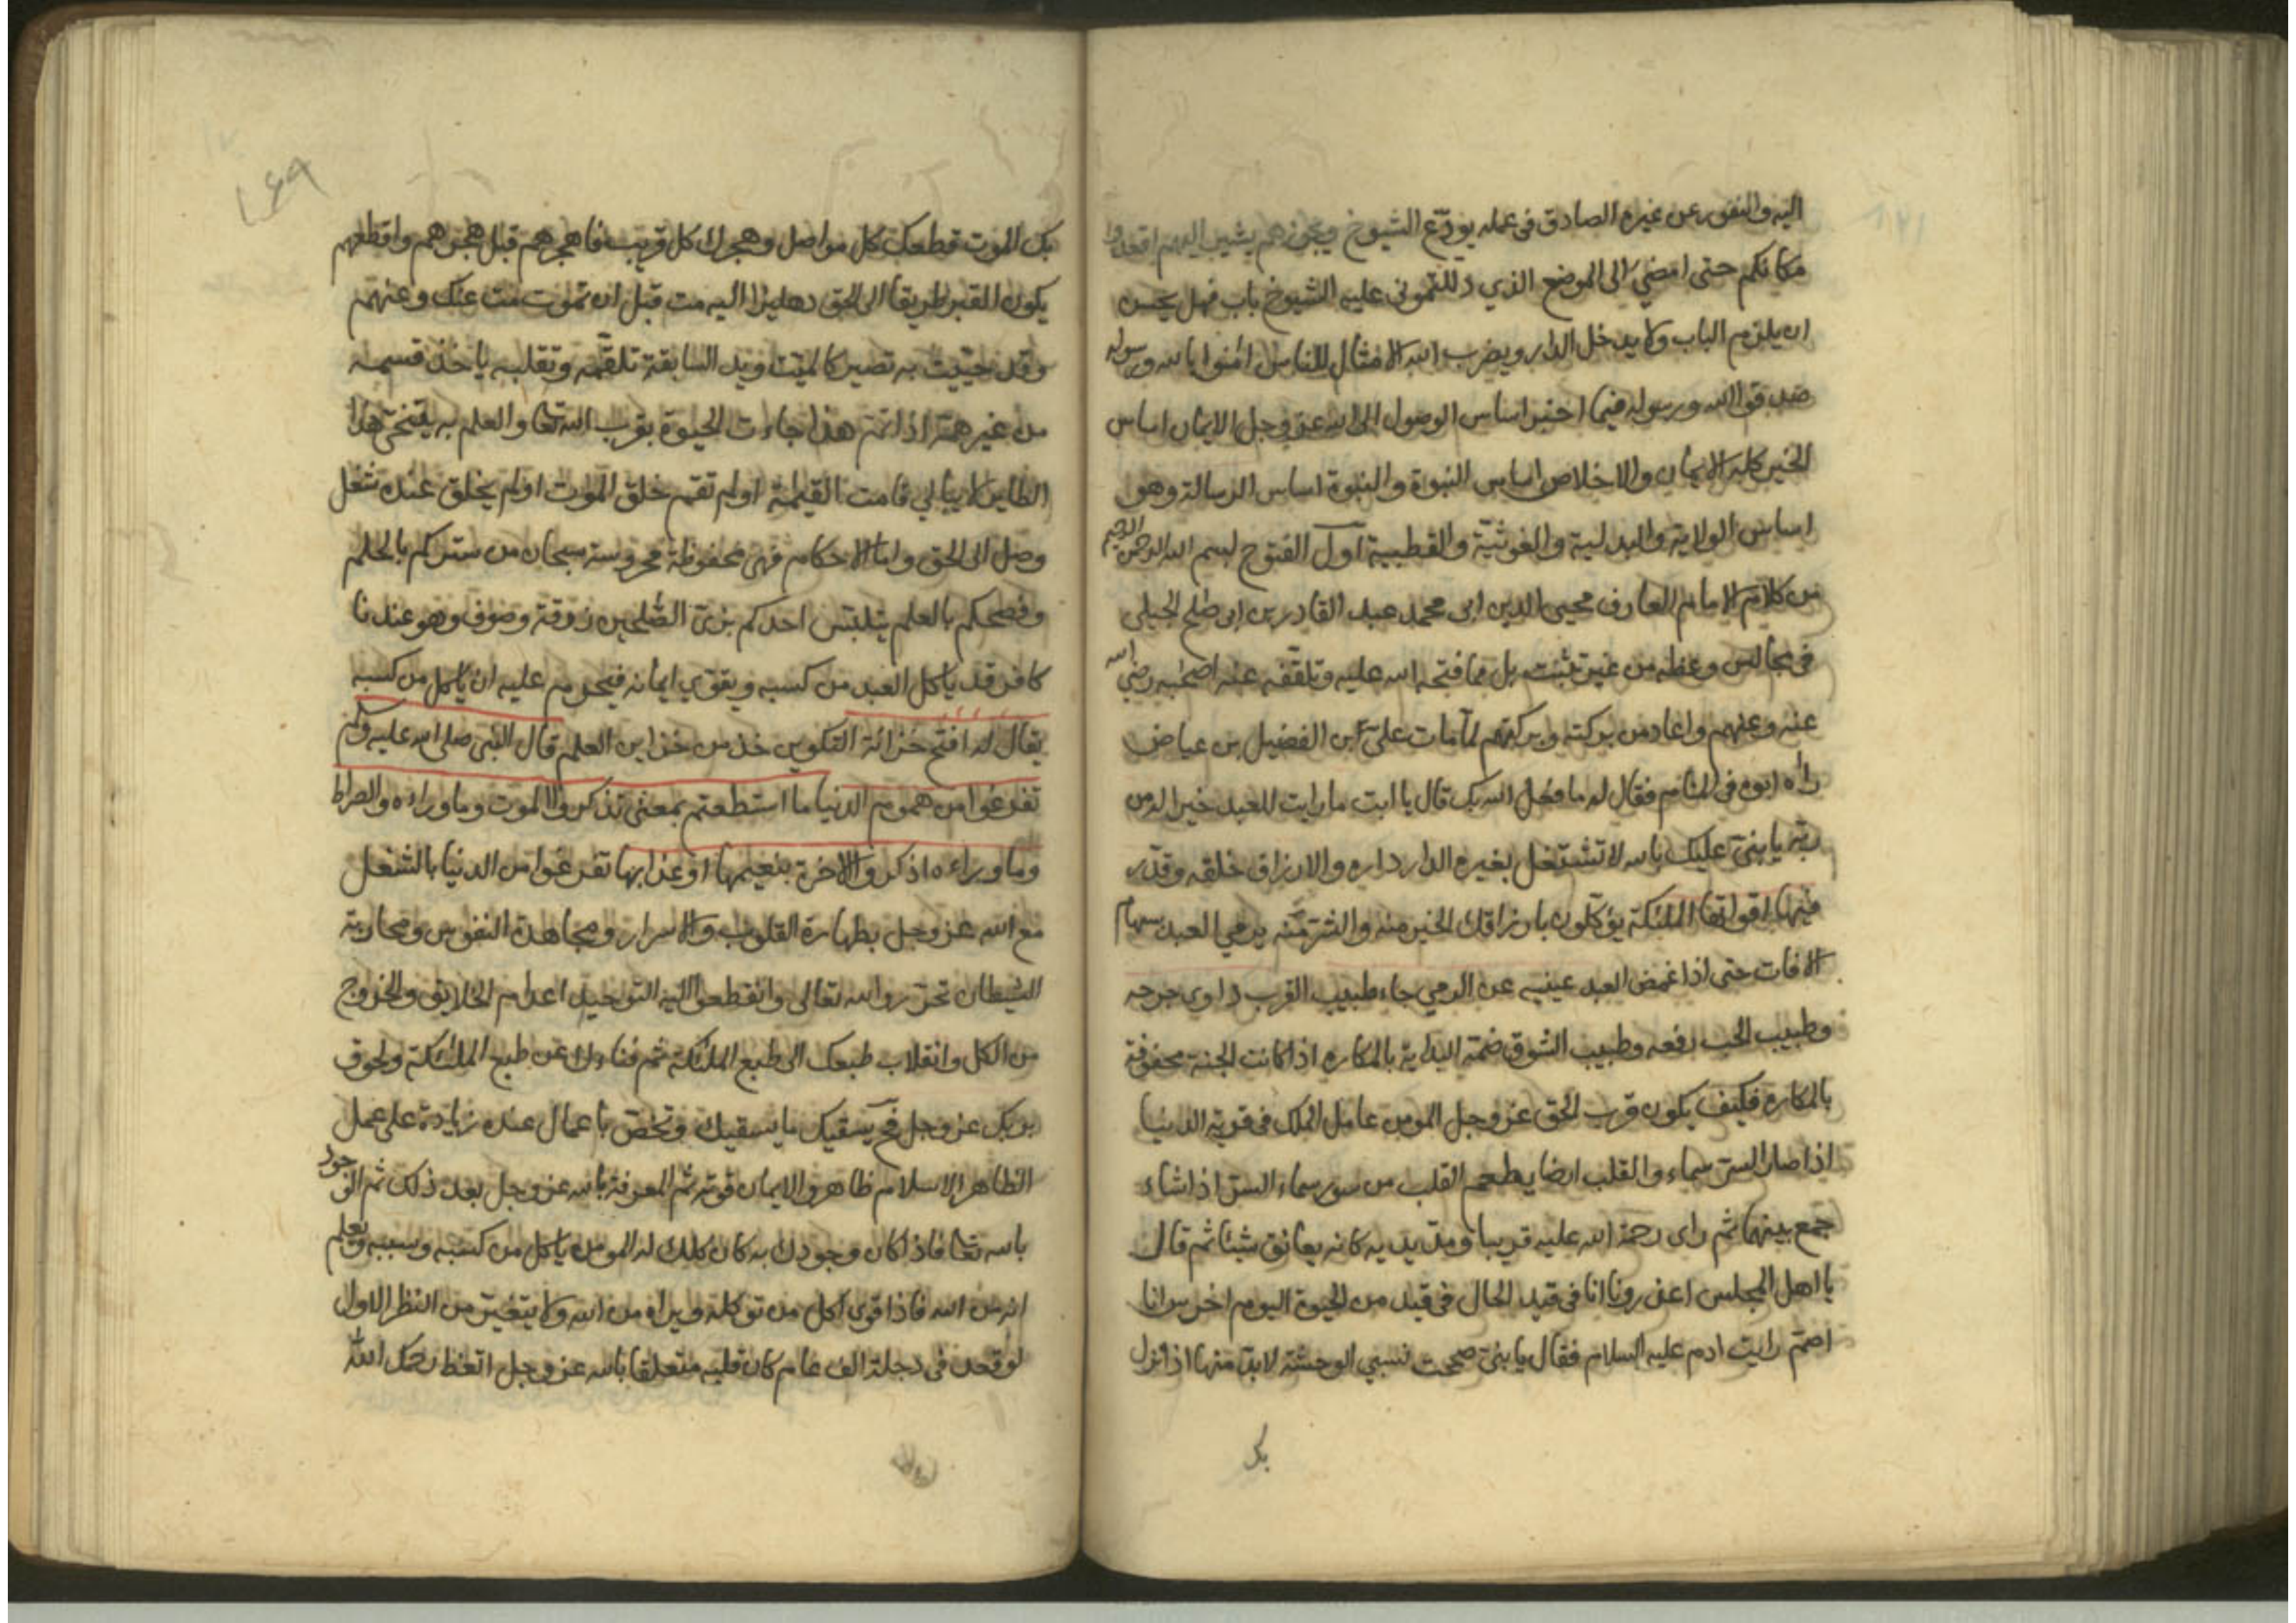 اليه والنفور عن غيره الصادق في عمله يودّع الشيوخ ويجوزهم يشير اليهم اقعدوا
مكانكم حتى امضي الى الموضع الذي دللتموني عليه الشيوخ باب فهل يحسن
ان يلزم الباب ولا يدخل الدار ويضرب الله الامثال للناس امنوا بالله ورسوله
صدقوا الله ورسوله فيما اخبر اساس الوصول الى الله عز وجل الايمان اساس
الخير كله الايمان والاخلاص اساس النبوة والنبوة اساس الرسالة وهو
اساس الولاية والبدلية والغوثية والقطبية اول الفتوح بسم الله الرحمن الرحيم
من كلام الامام العارف محيي الدين ابي محمد عبد القادر بن ابي صلح الجيلي
في مجالس وعظه من غير تثبت بل مما فتحه الله عليه وتلقفه عنه اصحبه رضي الله
عنه وعنهم واعاد من بركته وبركتهم لما مات علي بن الفضيل بن عياض
راه ابوه في المنام فقال له ما فعل الله بك قال يا ابت ما رايت للعبد خيرا له من
ربه يا بني عليك بالله لا تشتغل بغيره الدار داره والارزاق خلقه وقدّر
فيها اقواتها الملئكة يؤكلون بارزاقك الخير منه والشر منه يرمي العبد سهام
الافات حتى اذا غمض العبد عينيه عن الرمي جاء طبيب القرب داوى جرحه
وطبيب الحب رفعه وطبيب الشوق ضمه البداية بالمكاره اذا كانت الجنة محفوفة
بالمكاره فكيف يكون قرب الحق عز وجل المومن عامل الملك في قرية الدنيا
اذا صار السر سماء والقلب ارضا يطعم القلب من سور سماء السر اذا شاء
جمع بينهما ثم راى رحمة الله عليه قريبا ومدّ يديه كانه يعانق شيئا ثم قال
يا اهل المجلس اعذرونا انا في قيد الحال في قيد من الحيوة اليوم اخرس انا
اصم رايت ادم عليه السلام فقال يا بني صحت نسبي الوحشة لابد منها اذا نزل
بك
بك الموت قطعك كل مواصل وهجرك كل قريب فاهجرهم قبل هجرهم واقطعهم
يكون القبر طريقا الى الحق دهليزا اليه مت قبل ان تموت مت عنك وعنهم
وقد حييت به تصير كالميت ويد السابقة تلقمه وتقلبه ياخذ قسمه
من غير همة اذا تم هذا جاءت الحيوة بقرب الله تعا والعلم به يتنحى هذا
الطاين لا يبالي قامت القيمة اولم تقم خلق الموت اولم يخلق عنده شغل
وصل الى الحق واما الاحكام فهي محفوظة محروسة سبحان من ستركم بالحلم
وفضحكم بالعلم يتلبس احدكم بزي الصلحين زوقة وصوف وهو عندنا
كافر قد ياكل العبد من كسبه ويقوي ايمانه فيحرم عليه ان ياكل من كسبه
يقال له افتح خزانة التكوين خذ من خزاين العلم قال النبي صلى الله عليه وسلم
تفرغوا من هموم الدنيا ما استطعتم بمعنى تذكروا الموت وما وراءه والصراط
وما وراءه اذكروا الاخرة بنعيمها او عذابها تفرغوا من الدنيا بالشغل
مع الله عز وجل بطهارة القلوب والاسرار ومجاهدة النفوس ومحاربة
الشيطان تحرروا لله تعالى وانقطعوا اليه التوحيد اعدام الخلايق والخروج
من الكل وانقلاب طبعك الى طبع الملئكة ثم فناءك عن طبع الملئكة ولحوق
بربك عز وجل فح يسقيك ما يسقيك وتخص باعمال عنده زيادة على عمل
الظاهر الاسلام ظاهر والايمان قوته ثم المعرفة بالله عز وجل بعد ذلك ثم الوجود
بالله تعا فاذا كان وجودك به كان كلك له المومن ياكل من كسبه وسببه ويعلم
انه من الله فاذا قوي اكل من توكله ويراه من الله ولا يتغير من النظر الاول
لو قعد في دجلة الف عام كان قلبه متعلقا بالله عز وجل اتعظ رحمك الله